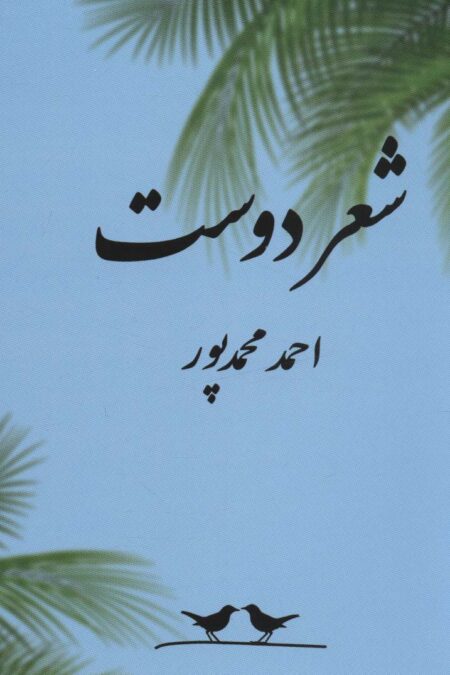 شعر دوست
احمد محمدپور